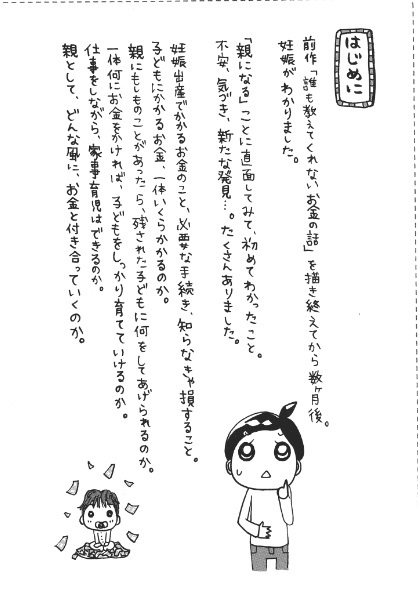 はじめに
前作「誰も教えてくれないお金の話」を描き終えてから数ヶ月後。
妊娠がわかりました。
「親になる」ことに直面してみて、初めてわかったこと。
不安、気づき、新たな発見…。たくさんありました。
妊娠出産でかかるお金のこと、必要な手続き、知らなきゃ損すること。
子どもにかかるお金、一体いくらかかるのか。
親にもしものことがあったら、残された子どもに何をしてあげられるのか。
一体何にお金をかければ、子どもをしっかり育てていけるのか。
仕事をしながら、家事育児はできるのか。
親として、どんな風に、お金と付き合っていくのか。